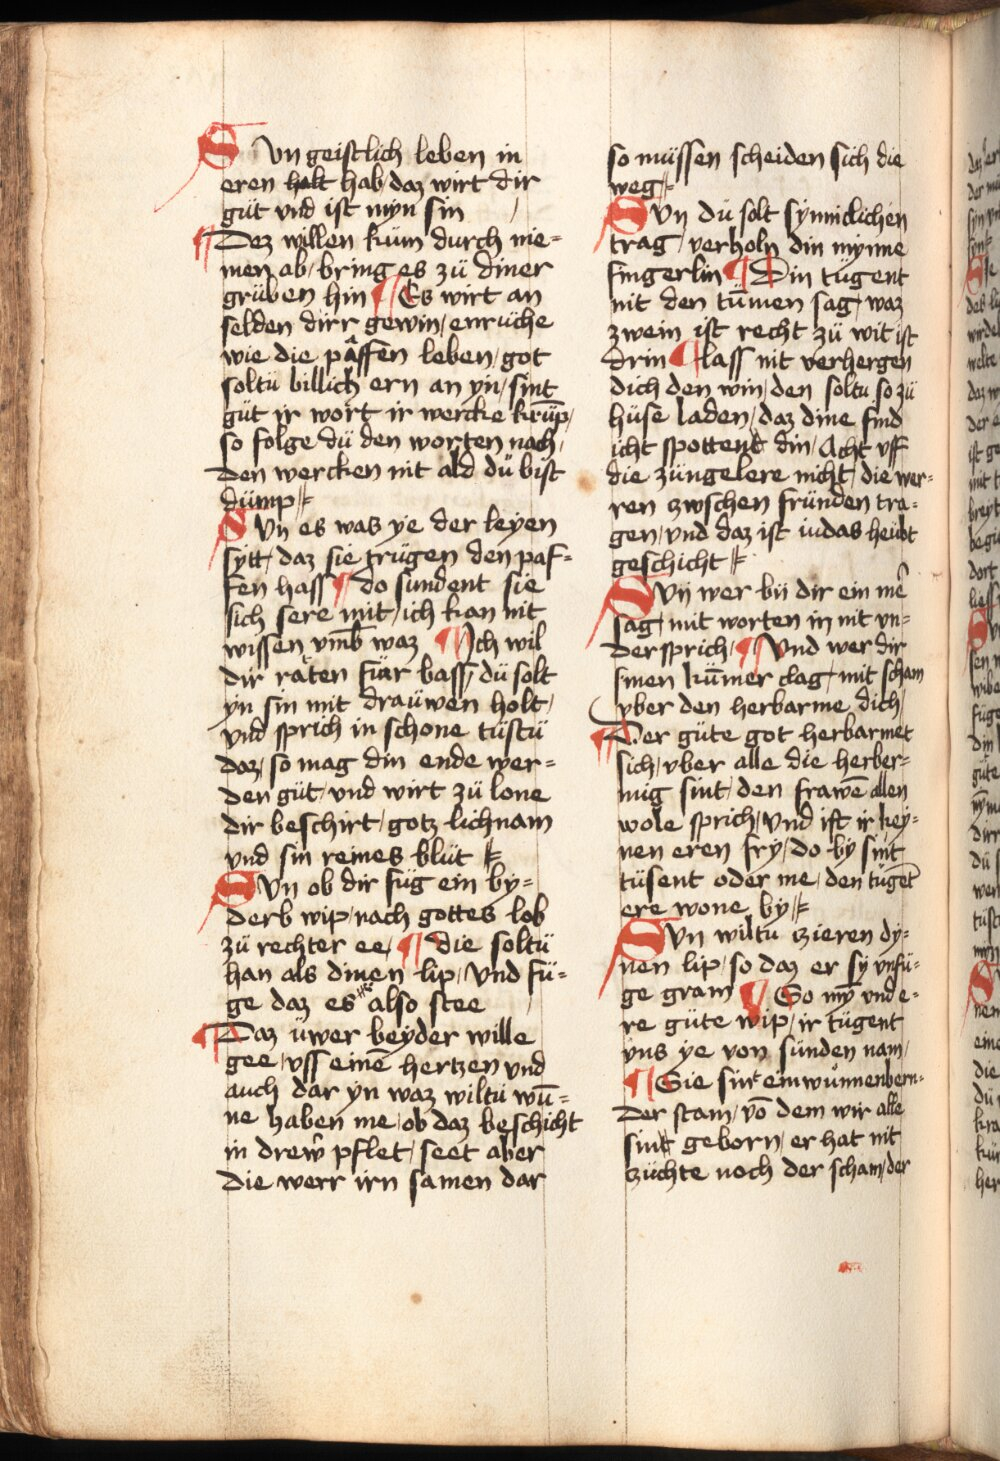 SVn geistlich leben in
eren halt hab daz wirt dir
güt vnd ist myn sin
¶ Dez willen küm durch nie=
men ab / bring es zü diner
grüben hin ¶ Es wirt an
selden dirr gewin / enrüche
wie die pâffen leben / got
soltü billich ern an yn / sint
güt ir wort ir wercke krūp /
so folge dü den worten nach /
den wercken nit ald dü bist
dümp /
SVn es was ye der leyen
sytt / daz sie trügen den paf=
fen hass ¶ do sündent sie
sich sere mit / ich kan nit
wissen vmb waz ¶ Ich wil
dir räten für bass / dü solt
yn sin mit draüwen holt /
vnd sprich in schone tüstü
daz / so mag din ende wer=
den güt / vnd wirt zü lone
dir beschirt / gotz lichnam
vnd sin reines blüt
SVn ob dir füg ein by=
derb wip / nach gottes lob
zü rechter ee / ¶ die soltü
han als dinen lip / Vnd fü=
ge daz es also stee
¶ Daz üwer beyder wille
gee / vss einē hertzen vnd
auch dar yn waz wiltü wū=
ne haben me / ob daz beschicht
in drew̑ pflet / seet aber
die werr irn samen dar
so müssen scheiden sich die
weg
SVn dü solt synnicklichen
trag / verholn din mynne
fingerlin ¶ Din tügent
nit den tūmen sag / waz
zwein ist recht zü wit ist
drin ¶ lass nit verhergen
dich den win / den soltu so zü
hüse laden / daz dine find
icht spottent din / Acht vff
die züngelere nicht / die wer=
ren zwschen fründen tra=
gen / vnd daz ist iudas heübt
geschicht
SVn wer bii dir ein me᷑
sag / mit worten in nit vn=
dersprich / ¶ Vnd wer dir
sinen kūmer clag / mit scham
vber den herbarme dich /
¶ Der güte got herbarmet
sich / vber alle die herber=
mig sint / den frawē allen
wole sprich / Vnd ist ir key=
nen eren fry / do by sint
tüsent oder me / den tügēt
ere wone by /
SVn wiltu zieren dy=
nen lip / so daz er sy vnfü=
ge gram ¶ So mȳ vnd e=
re güte wip / ir tügent
vns ye von sünden nam /
¶ Sie sint ein wünnenbern=
der stam / vō dem wir alle
sint geborn / er hat nit
züchte noch der scham / der